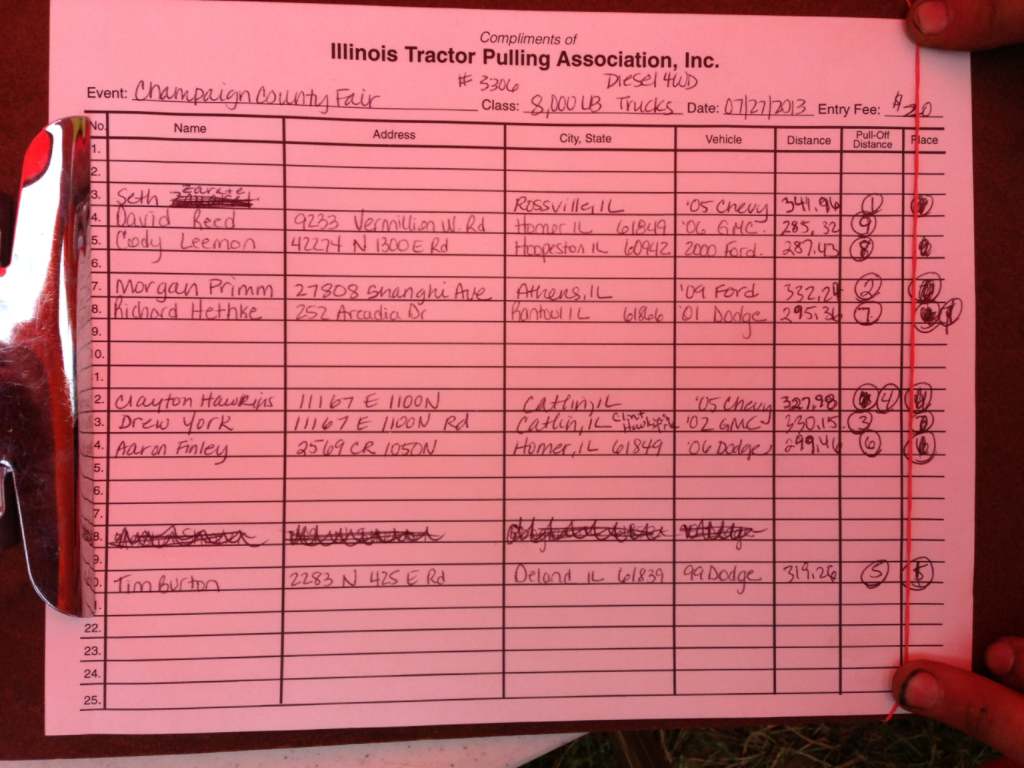 Compliments of
Illinois Tractor Pulling Association, Inc.
# 3306 Diesel 4WD
Event: Champaign County Fair Class: 8,000 LB Trucks Date: 07/27/2013 Entry Fee: $20
No. Name Address City, State Vehicle Distance Pull-Off Distance Place
1.
2.
3. Seth Rossville, IL '05 Chevy 341.96 1
4. David Reed 9233 Vermillion W. Rd Homer IL 61849 '06 GMC. 285.32 9
5. Cody Leemon 42274 N 1300 E Rd Hoopeston IL 60942 2000 Ford. 287.43 8
6.
7. Morgan Primm 27808 Shanghi Ave Athens, IL '09 Ford 332.24 2
8. Richard Hethke 252 Arcadia Dr Rantoul IL 61866 '01 Dodge 295.36 7
9.
10.
1.
2. Clayton Hawkins 11167 E 1100N Catlin, IL '05 Chevy 327.98 4
3. Drew York 11167 E 1100N Rd Catlin, IL '02 GMC 330.15 3
4. Aaron Finley 2569 CR 1050N Homer, IL 61849 '06 Dodge 299.46 6
5.
6.
7.
8.
9.
0. Tim Burton 2283 N 425 E Rd Deland IL 61839 99 Dodge 319.26 5 5
1.
22.
23.
24.
25.